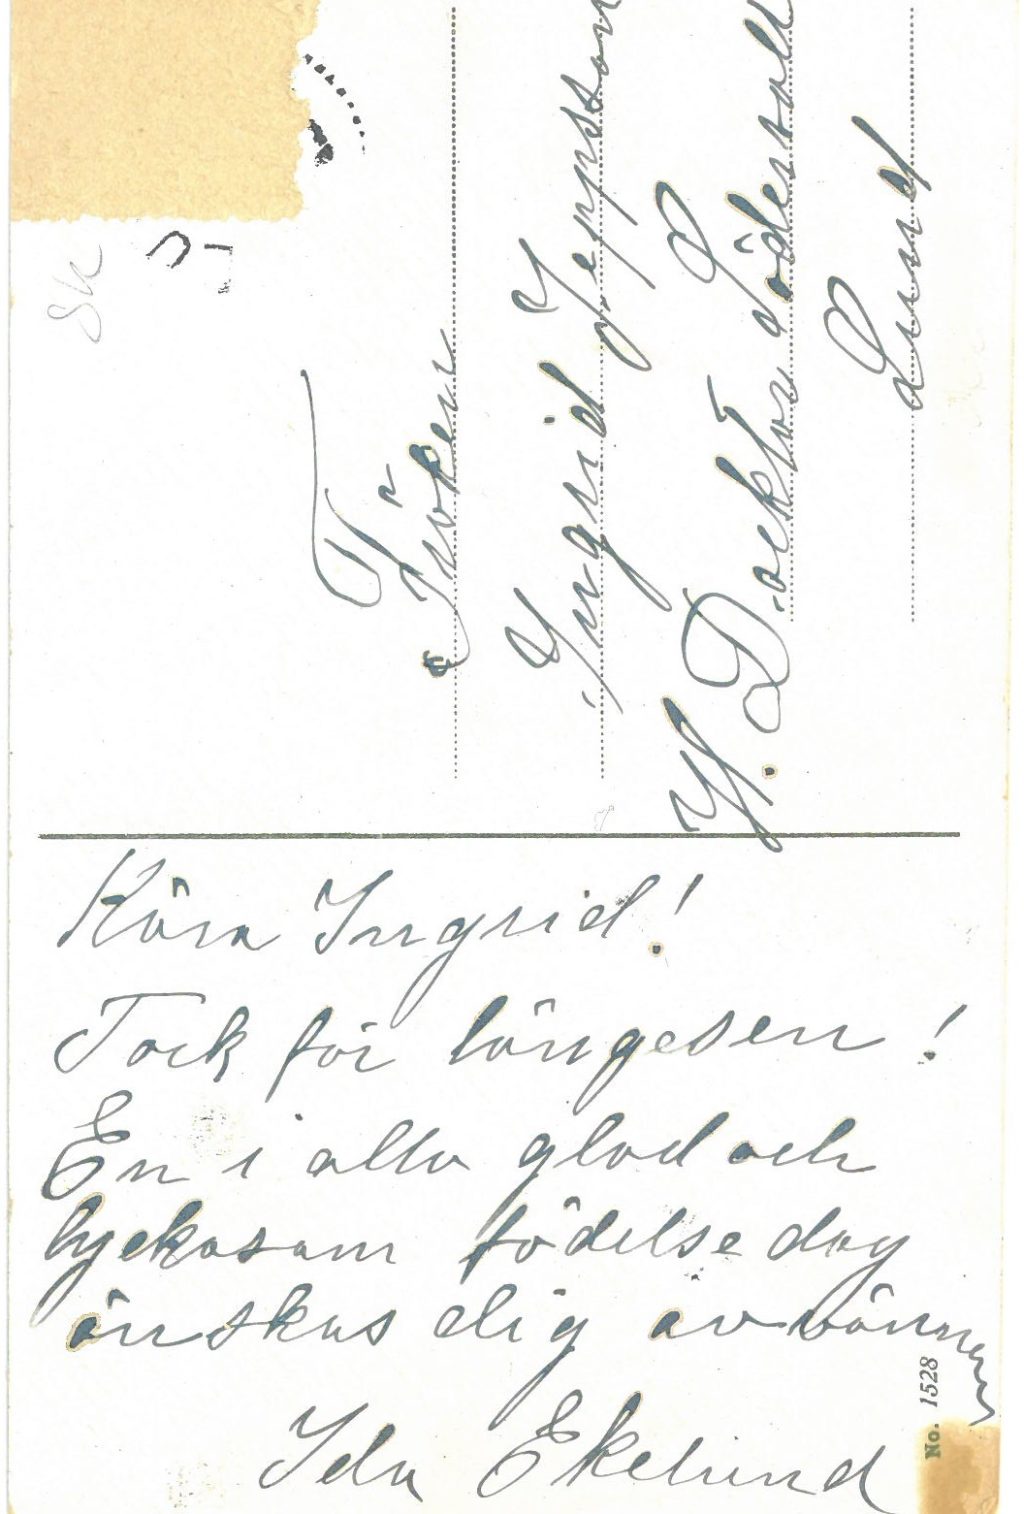 Kära Ingrid!
Tack för längesen!
En i alla glad och
lyckosam födelsedag
önskas dig av vännen
Ida Ekelund
Fröken
Ingrid Jeppsson
Doektor Södervall
Lund
No. 1528